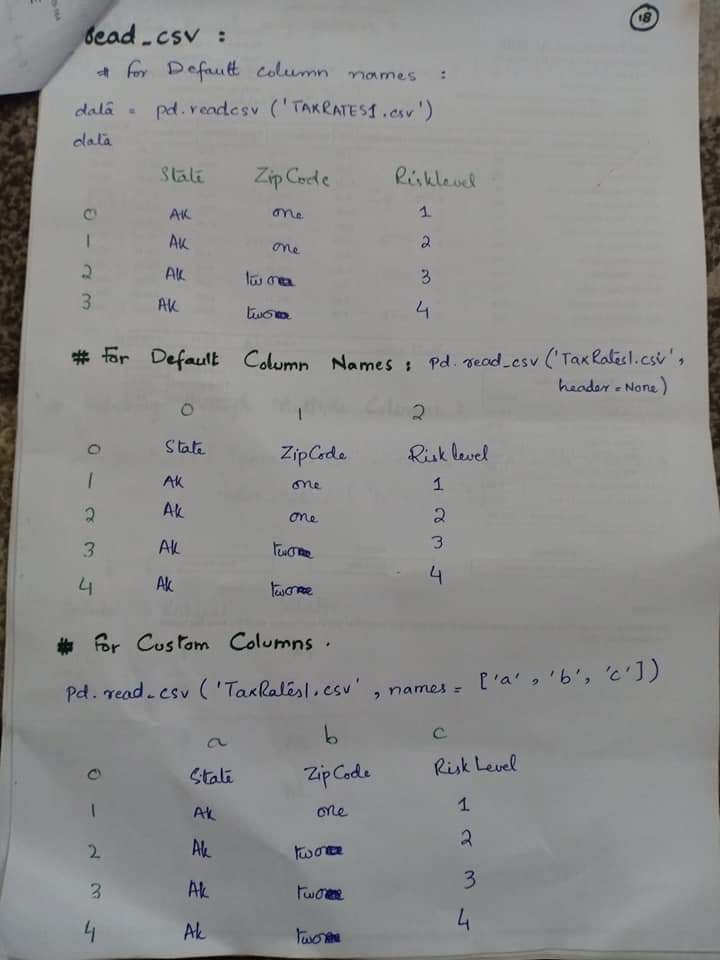 18
read_csv :
* For Default column names :
data = pd.readcsv ('TAXRATES1.csv')
data
State ZipCode Risklevel
0 AK one 1
1 AK one 2
2 AK two 3
3 AK two 4
# For Default Column Names : pd.read_csv ('TaxRates1.csv',
header = None)
0 1 2
0 State ZipCode Risk level
1 AK one 1
2 AK one 2
3 AK two 3
4 AK two 4
# For Custom Columns .
pd.read_csv ('TaxRates1.csv' , names = ['a' , 'b' , 'c'])
a b c
0 State ZipCode Risk Level
1 AK one 1
2 AK two 2
3 AK two 3
4 AK two 4